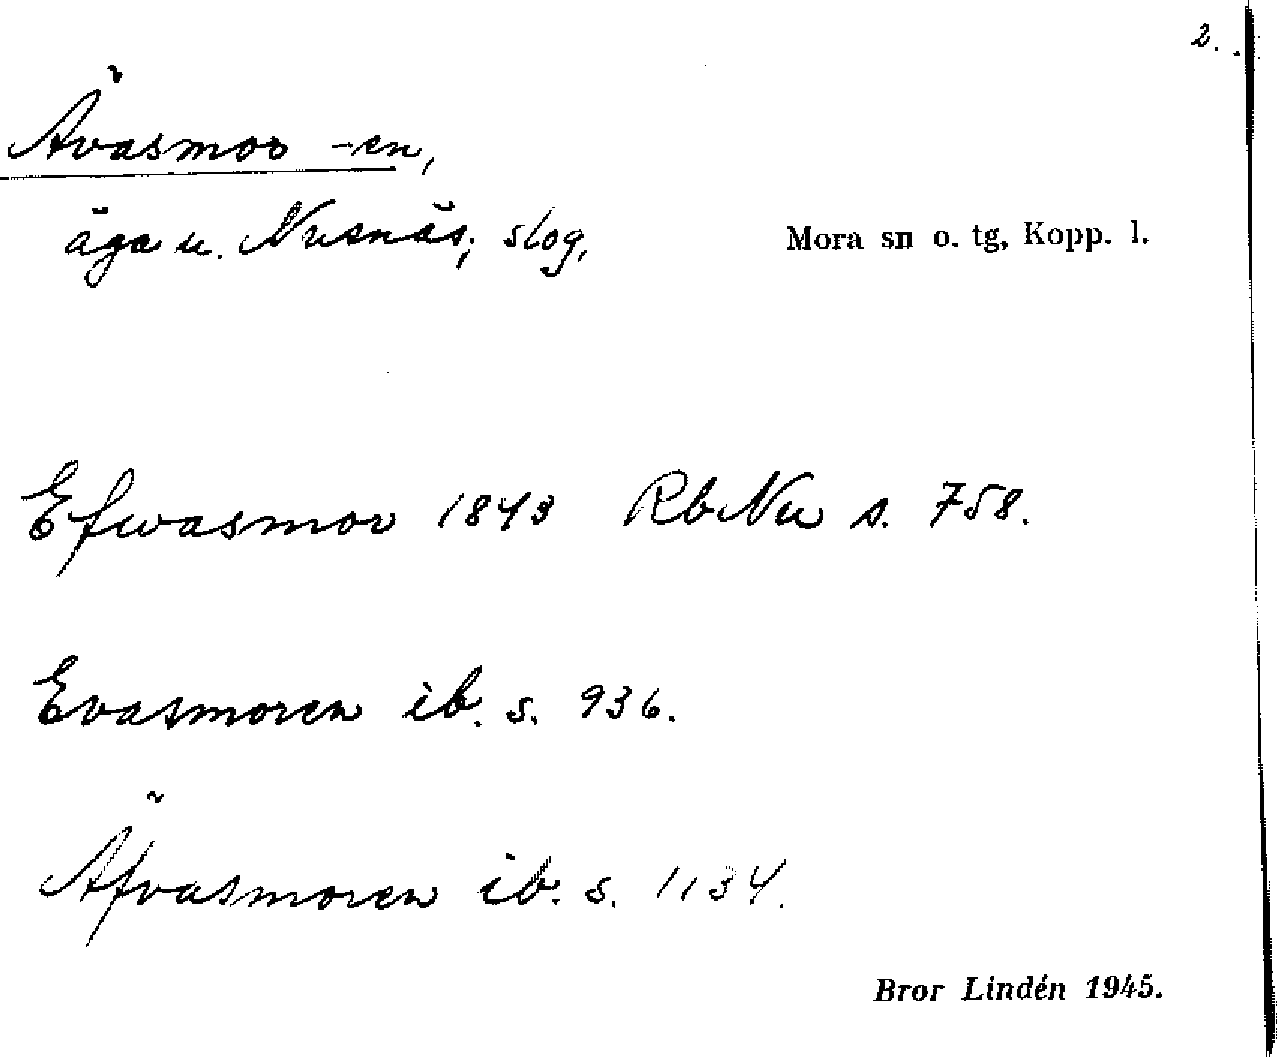 2.
Ävasmor -en,
äga u. Nusnäs; slog, Mora sn o. tg, Kopp. l.
Efwasmor 1843 RbNu s. 758.
Evasmoren ib. s. 936.
Äfvasmoren ib. s. 1134.
Bror Lindén 1945.